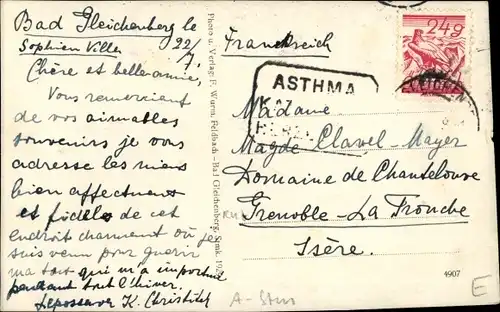 Bad Gleichenberg le
Sophien Villa 22/7.
Chère et belle amie,
Vous remerciant
de vos aimables
souvenirs je vous
adresse les miens
bien affectueux
et fidèles de cet
endroit charmant où je
suis venu pour guérir
ma toux qui m'a importuné
pendant tout l'hiver.
K. Christitch
Photo u. Verlag: F. Wurm, Feldbach-Bad Gleichenberg, Stmk.
Franckreich
24 g
ASTHMA
KAT
HERZ
Madame
Magde Clavel-Mayer
Domaine de Chantelouve
Grenoble-La Tronche
Isère.
4907
A-Stm
E